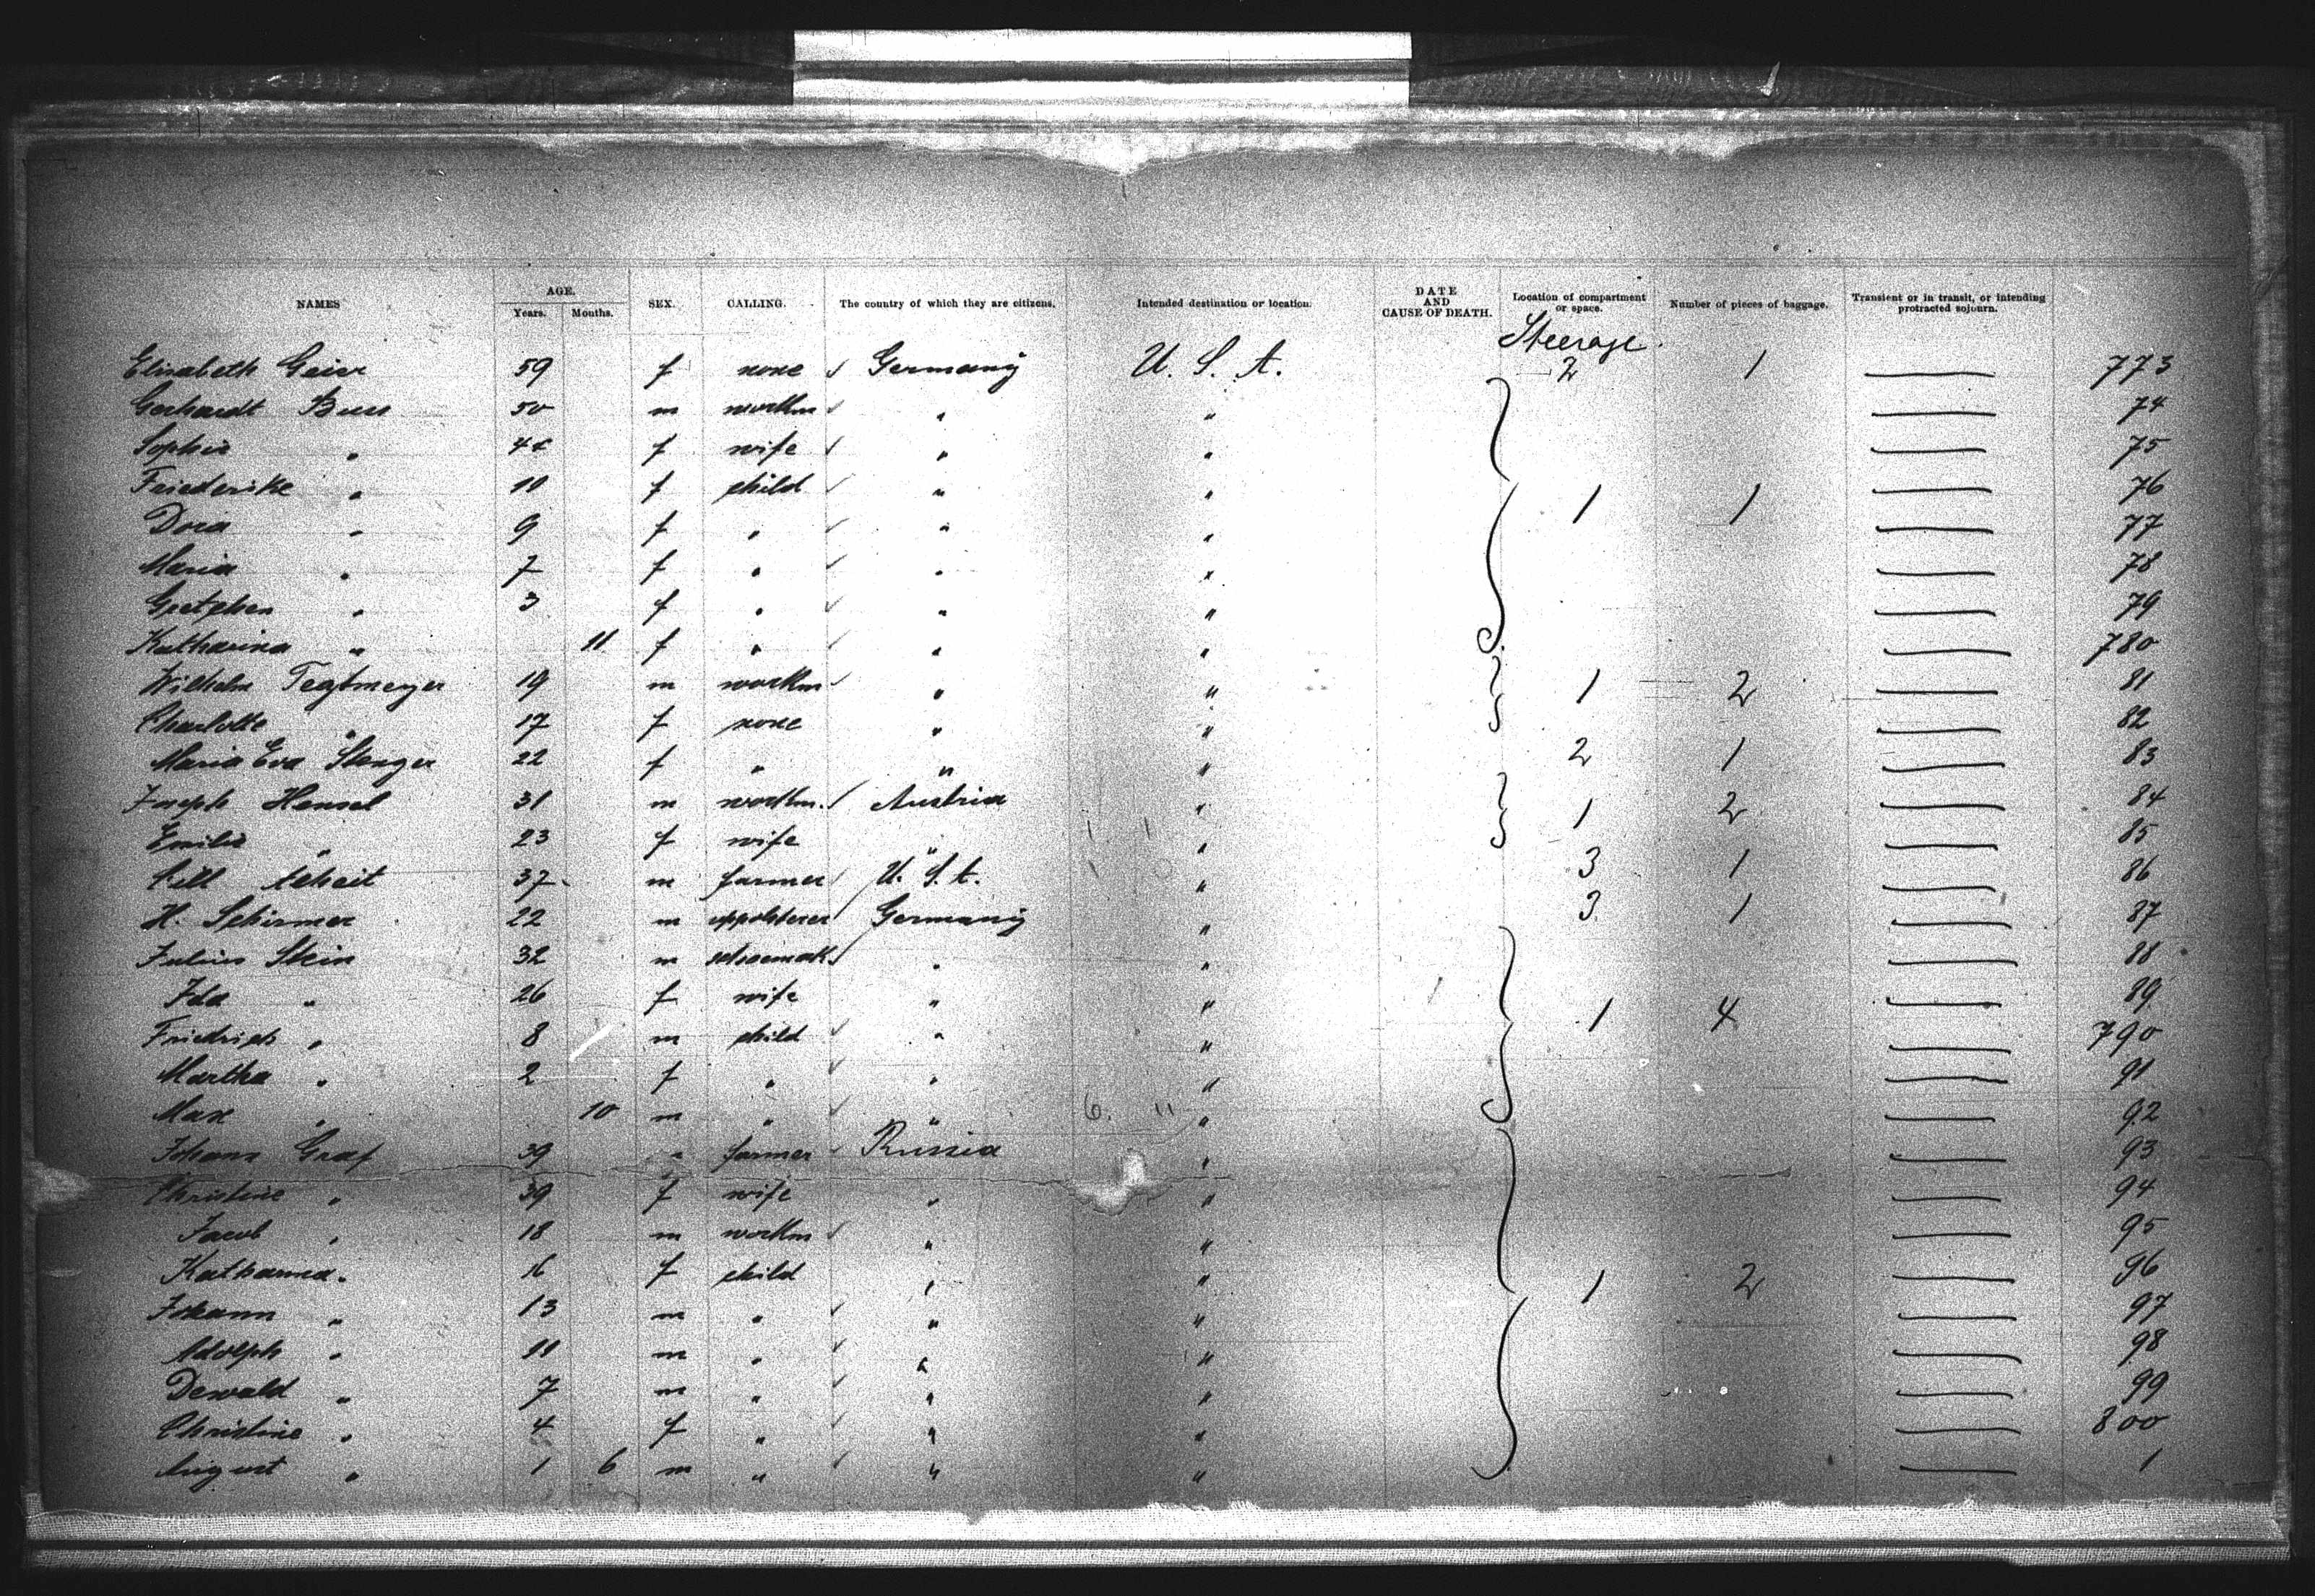 NAMES AGE. Years. Months. SEX. CALLING. The country of which they are citizens. Intended destination or location. DATE AND CAUSE OF DEATH. Location of compartment or space. Number of pieces of baggage. Transient or in transit, or intending protracted sojourn.
Steerage.
Elisabeth Geier 59 f none Germany U. S. A. 2 1 773
Gerhardt 50 m workm " " 74
Sophie " 44 f wife " " 75
Friederike " 10 f child " " 1 1 76
Dora " 9 f " " " 77
Maria " 7 f " " " 78
Gretchen " 3 f " " " 79
Katharina " 11 f " " " 780
Wilhelm Tegtmeyer 19 m workm " " 1 2 81
Charlotte " 17 f none " " 82
Maria Eva Stenger 22 f " " " 2 1 83
Joseph Hensel 31 m workm. Austria " 1 2 84
Emilie " 23 f wife " " 85
37 m farmer U. S. A. " 3 1 86
H. Schirmer 22 m uppolsterer Germany " 3 1 87
Julius Stein 32 m schoemak. " " 88
Ida " 26 f wife " " 1 4 89
Friedrich " 8 m child " " 790
Martha " 2 f " " " 91
Max " 10 m " " " 92
Johann Graf 39 " farmer Russia " 93
Christine " 39 f wife " " 94
Jacob " 18 m workm " " 95
Katharina " 16 f child " " 1 2 96
Johann " 13 m " " " 97
Adolph " 11 m " " " 98
Dewald " 7 m " " " 99
Christine " 4 f " " " 800
August " 1 6 m " " " 1